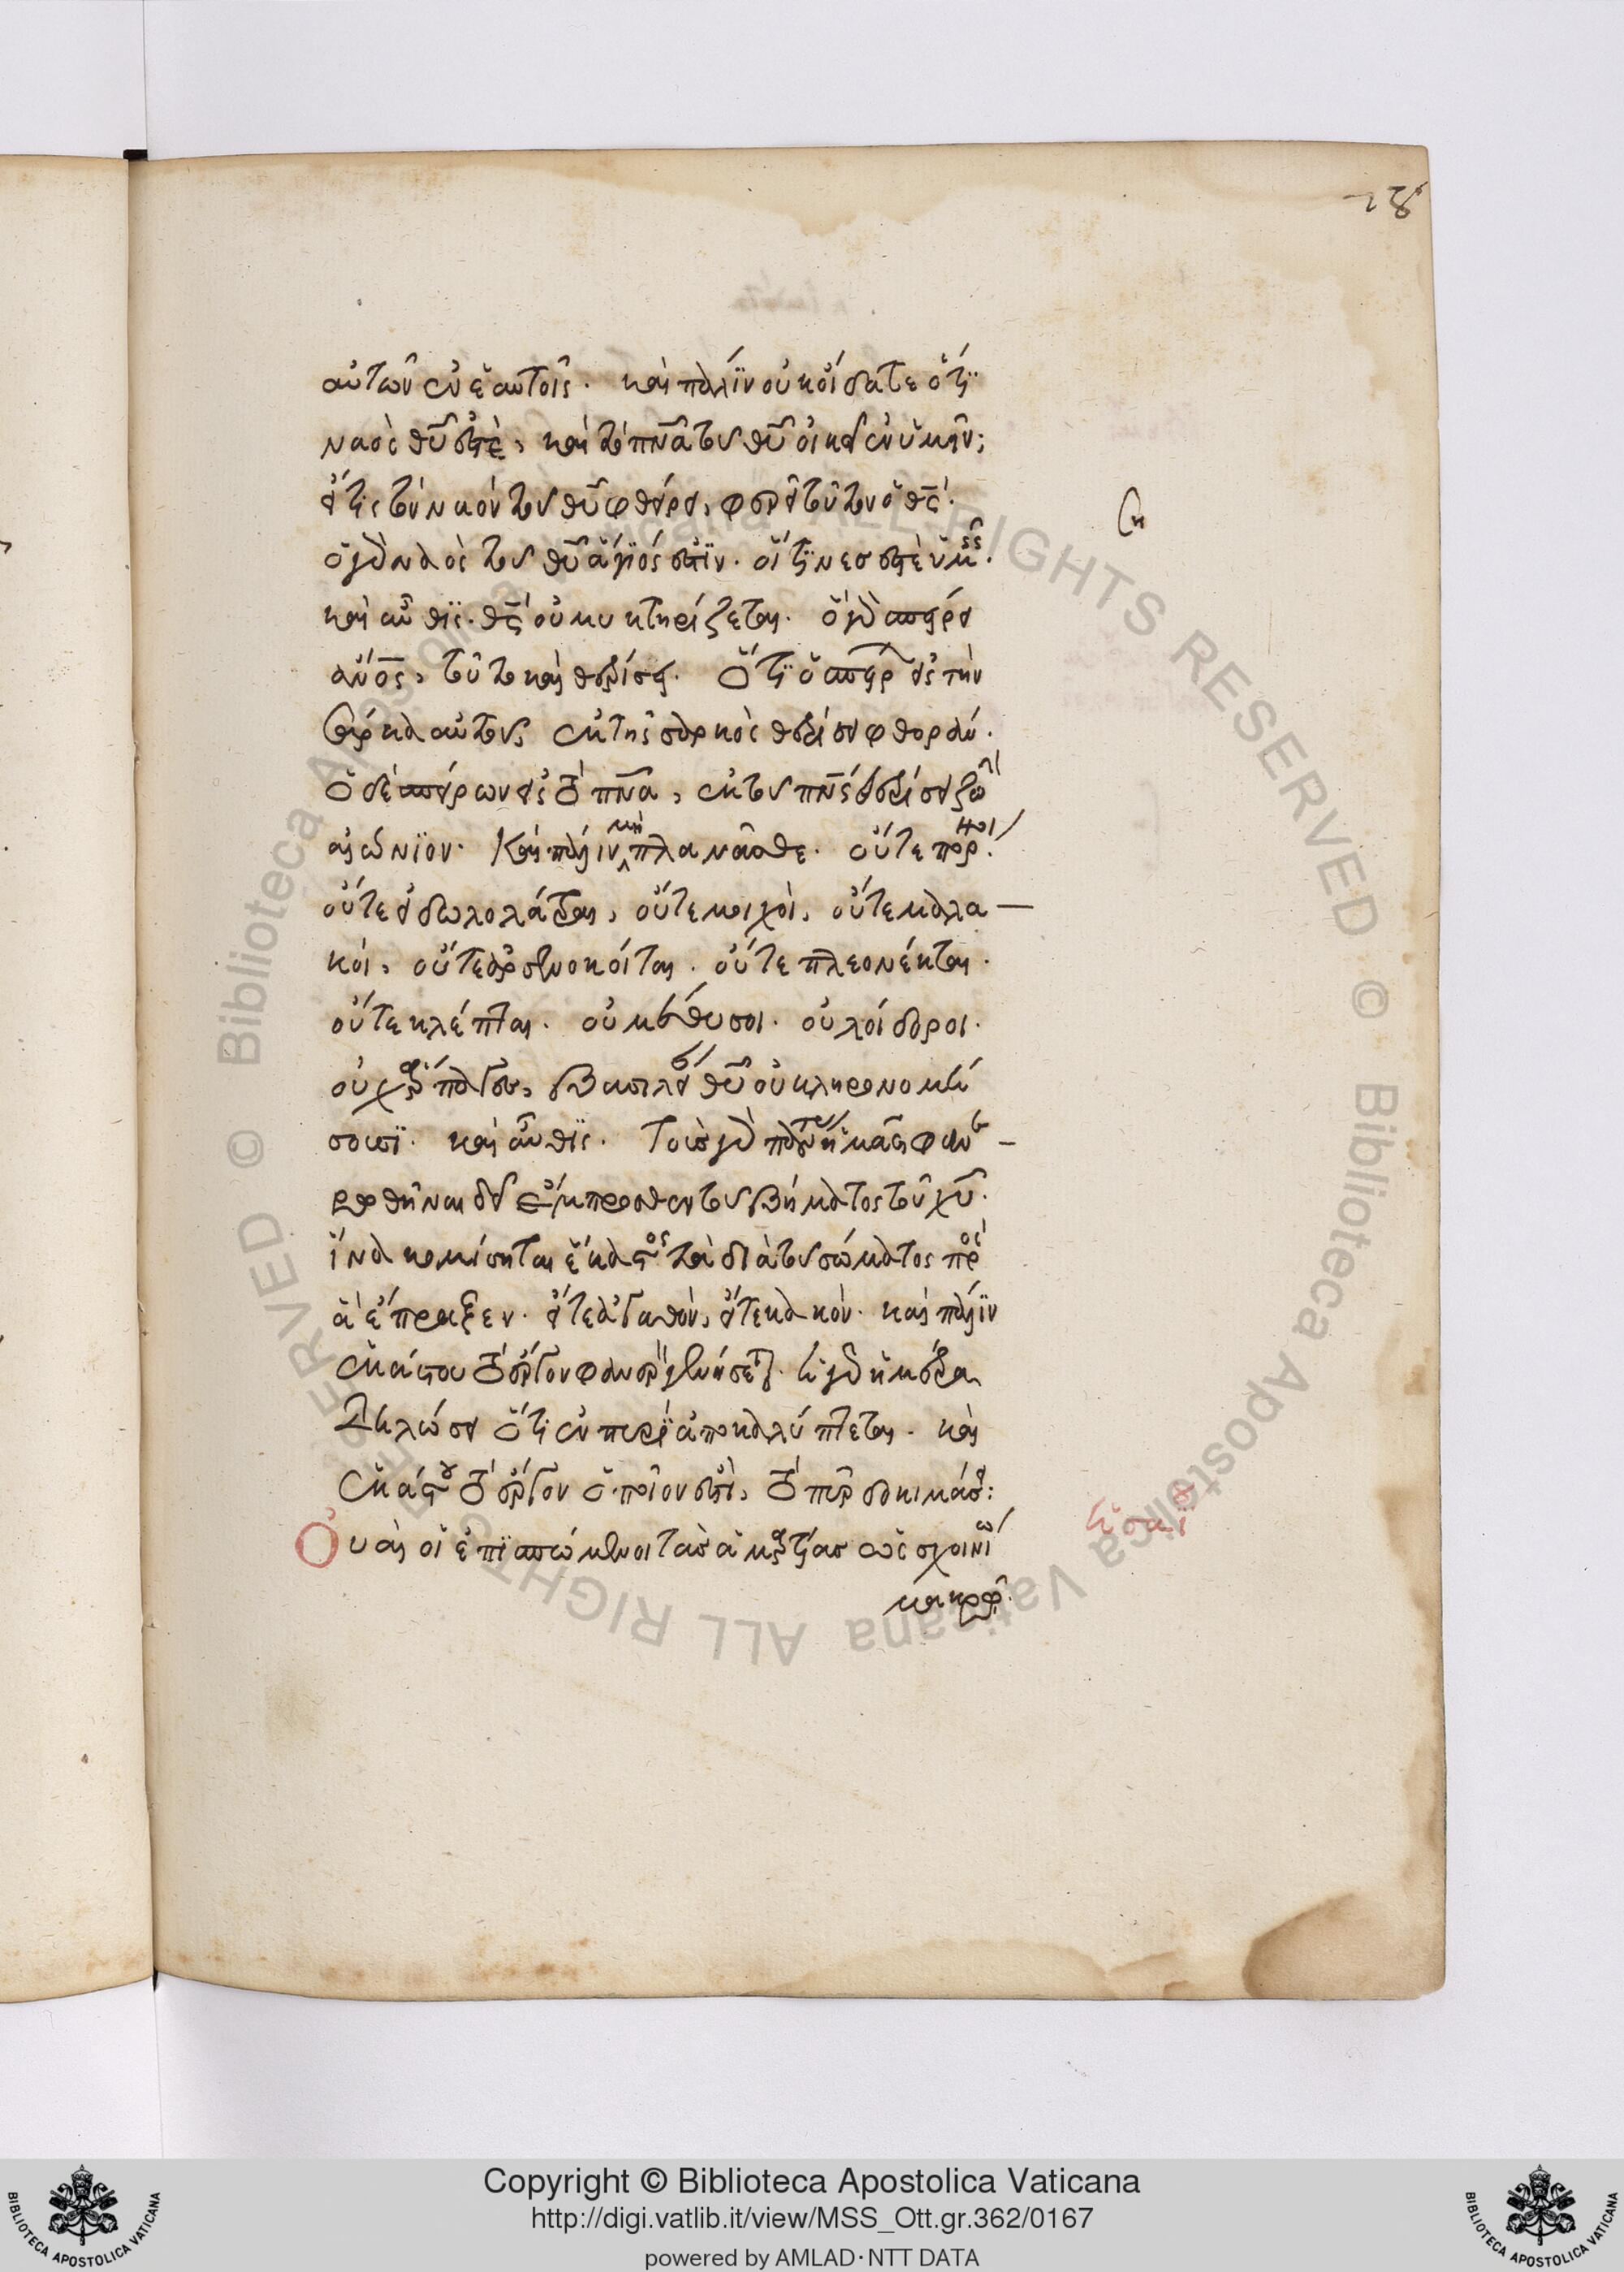 αὐτῶν ἐν ἑαυτοῖς. καὶ πάλϊν οὐκ οἴδατε ὅτϊ
ναὸς θῦ ἐστὲ, καὶ τὸ πνᾶ τοῦ θῦ οἰκεῖ ἐν ὑμῖν;
εἴ τις τὸν ναὸν τοῦ θῦ φθείρει, φθερεῖ τοῦτον ὁ θς.
ὁ γὰρ ναὸς τοῦ θῦ ἅγϊός ἐστϊν. οἵτϊνες ἐστὲ ὑμεῖς.
καὶ αὖθϊς. θς οὐ μυκτηρίζεται. ὃ γὰρ σπείρει
ἄνος, τοῦτο καὶ θερίσει. ὅτϊ ὁ σπείρων εἰς τὴν
σάρκα αὐτοῦ, ἐκ τῆς σαρκὸς θερίσει φθοράν.
ὁ δὲ σπείρων εἰς τὸ πνᾶ, ἐκ τοῦ πνς θερίσει ζωὴν
αἰώνϊον. Καὶ πάλιν μὴ πλανᾶσθε. οὔτε πόρνοι.
οὔτε εἰδωλολάτραι, οὔτε μοιχοὶ, οὔτε μαλα
κοὶ, οὔτε ἀρσενοκοίται. οὔτε πλεονέκται.
οὔτε κλέπται. οὐ μέθυσοι. οὐ λοίδοροι.
οὐχ ἅρπαγες, βασιλείαν θῦ οὐ κληρονομή
σουσϊ. καὶ αὖθϊς. Τοὺς γὰρ πάντας ἡμᾶς φανε
ρωθῆναι δεῖ ἔμπροσθεν τοῦ βήματος τοῦ χῦ.
ἵνα κομίσηται ἕκαστος τὰ διὰ τοῦ σώματος πρὸς
ἃ ἔπραξεν. εἴτε ἀγαθὸν, εἴτε κακόν. καὶ πάλϊν
ἑκάστου τὸ ἔργον φανερὸν γενήσεται. ἡ γὰρ ἡμέρα
δηλώσει ὅτι ἐν πυρὶ ἀποκαλύπτεται. καὶ
ἑκάστου τὸ ἔργον ὁποῖον ἐστὶ, τὸ πῦρ δοκιμάσει:
Οὐαὶ οἱ ἐπϊσπώμενοι τὰς ἁμαρτίας ὡς σχοινίω
μακρῷ.
ἡσαΐου